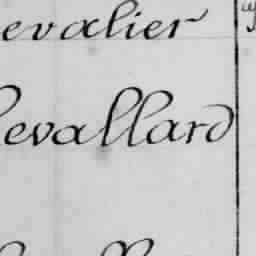 evalier
evallard